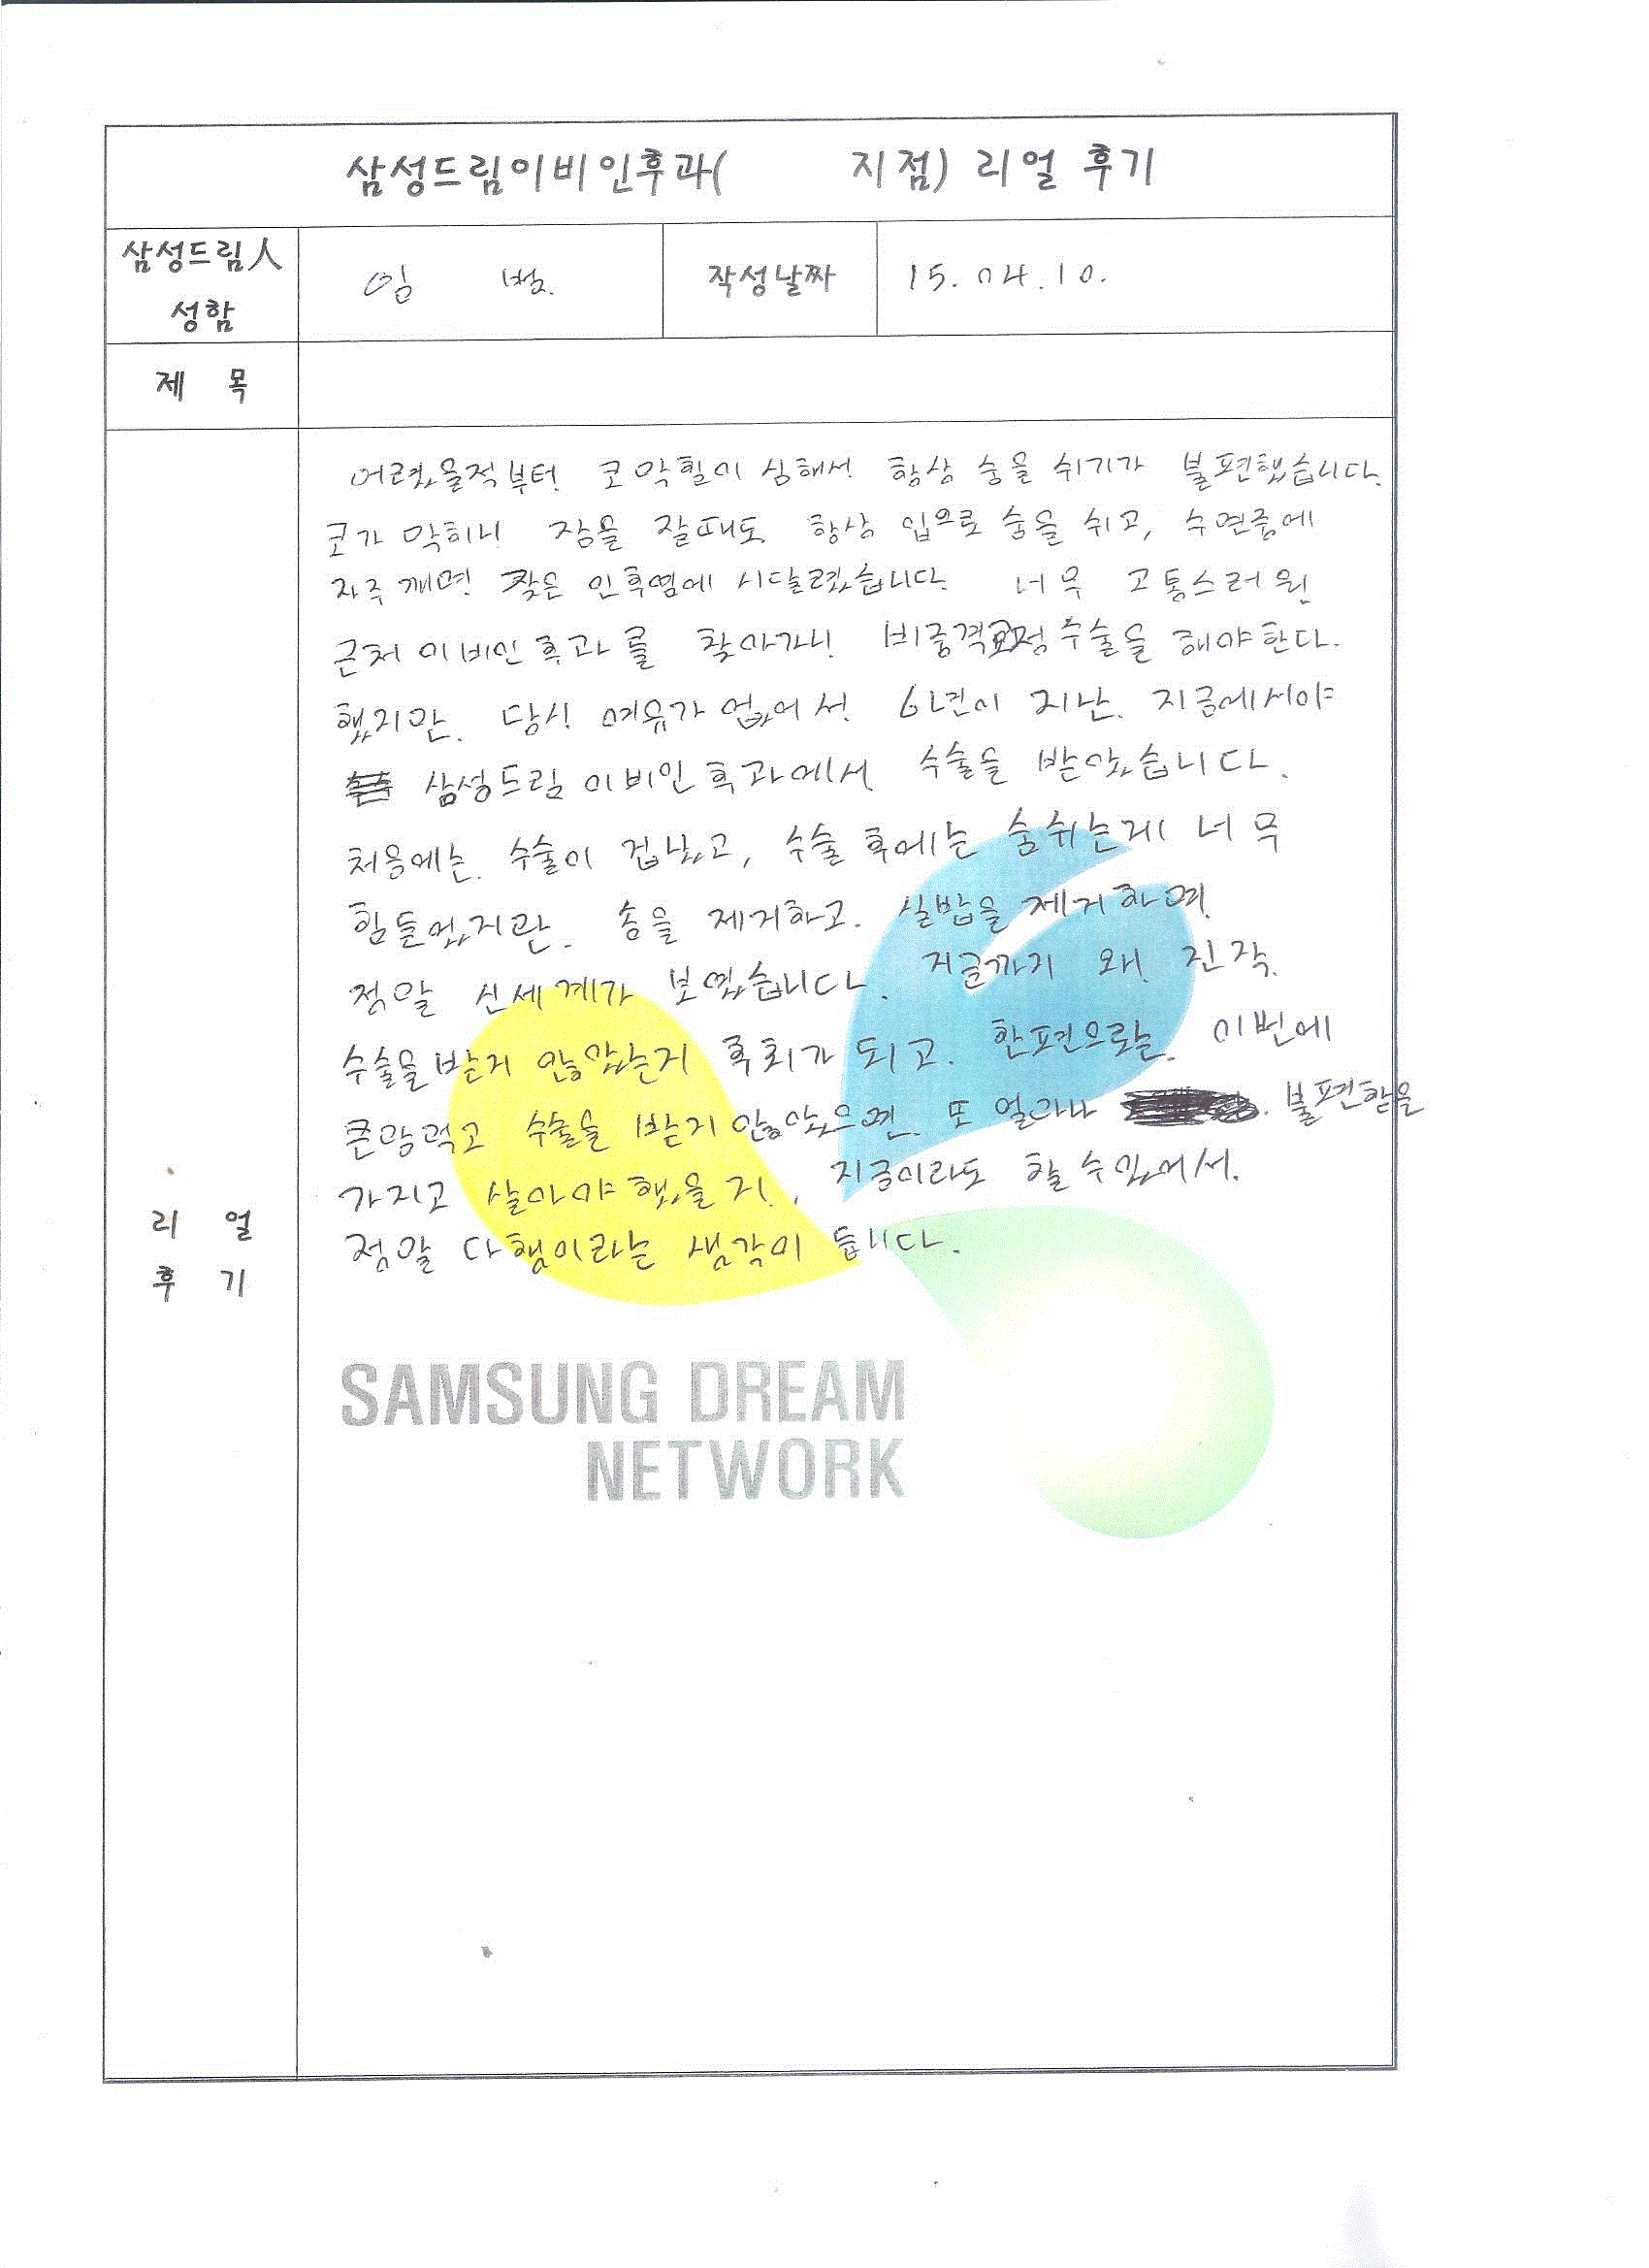 삼성드림이비인후과(        지점) 리얼 후기
삼성드림人
성함
임   범.
작성날짜
15. 04. 10.
제 목
어렸을적부터 코막힘이 심해서 항상 숨을 쉬기가 불편했습니다.
코가 막히니 잠을 잘때도 항상 입으로 숨을 쉬고, 수면중에
자주 깨며 잦은 인후염에 시달렸습니다. 너무 고통스러워
근처 이비인후과를 찾아가니 비중격교정수술을 해야한다.
했지만. 당시 여유가 없어서 6년이 지난. 지금에서야
삼성드림 이비인후과에서 수술을 받았습니다.
처음에는. 수술이 겁났고, 수술 후에는 숨쉬는게 너무
힘들었지만. 솜을 제거하고. 실밥을 제거하며.
정말 신세계가 보였습니다. 지금까지 왜 진작.
수술을 받지 않았는지 후회가 되고. 한편으로는. 이번에
큰맘먹고 수술을 받지 않았으면. 또 얼마나 불편함을
가지고 살아야했을지, 지금이라도 할 수 있어서.
정말 다행이라는 생각이 듭니다.
리 얼
후 기
SAMSUNG DREAM
NETWORK